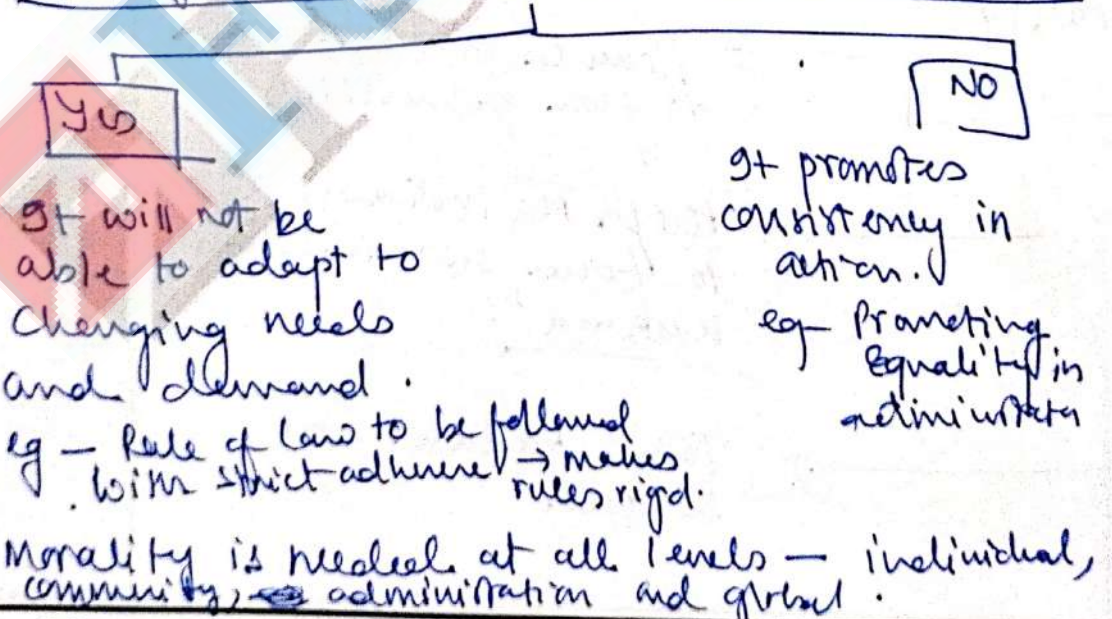 Yes
It will not be
able to adapt to
changing needs
and demand.
eg – Rule of Law to be followed
with strict adherence → makes
rules rigid.
NO
It promotes
consistency in
action.
eg – Promoting
Equality in
administratn
Morality is needed at all levels – individual,
community, administration and global.